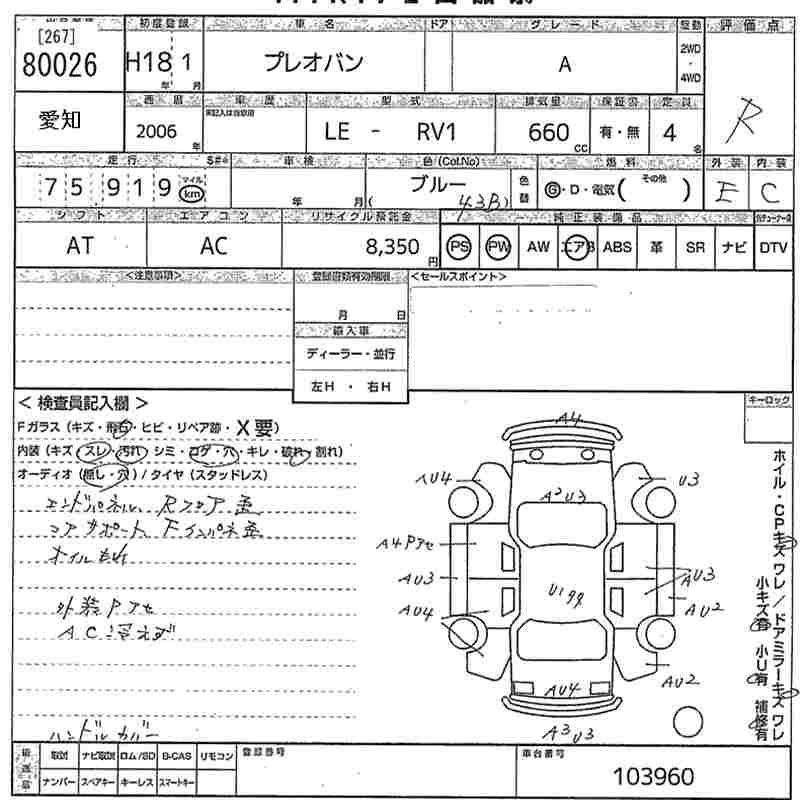 [267]
80026
初度登録
車名
ドア
グレード
駆動
評価点
H18 1
年 月
プレオバン
A
2WD
・
4WD
R
愛知
西暦
2006
年
車歴
未記入は自家用
型式
LE - RV1
排気量
660
CC
保証書
有・無
定員
4
名
走行
S#*
75919
マイル
km
車検
年 月
色(Col.No)
ブルー
( 43B )
色替
燃料
G・D・電気( その他 )
外装
E
内装
C
シフト
AT
エアコン
AC
リサイクル預託金
8,350
円
純正装備品
PS PW AW エアB ABS 革 SR ナビ DTV
<注意事項>
登録書類有効期限
月 日
<セールスポイント>
輸入車
ディーラー・並行
左H ・ 右H
< 検査員記入欄 >
Fガラス (キズ・飛石・ヒビ・リペア跡・X要)
内装 (キズ スレ・汚れ シミ・コゲ・穴・キレ・破れ・割れ)
オーディオ (無し・穴) / タイヤ (スタッドレス)
エンドパネル Rフロア歪
コアサポート Fインパネ歪
オイルもれ
外装Pアセ
AC冷えず
ハンドルカバー
キーロック
A4
AU4
U3
A2U3
A4Pアセ
AU3
AU3
U199
AU4
AU2
AU4
AU2
A3U3
ホイル・CPキズワレ/ドアミラーキズワレ
小キズ有 小U有 補修有
取説 ナビ取説 ロム/SD B-CAS リモコン
ナンバー スペアキー キーレス スマートキー
登録番号
車台番号
103960